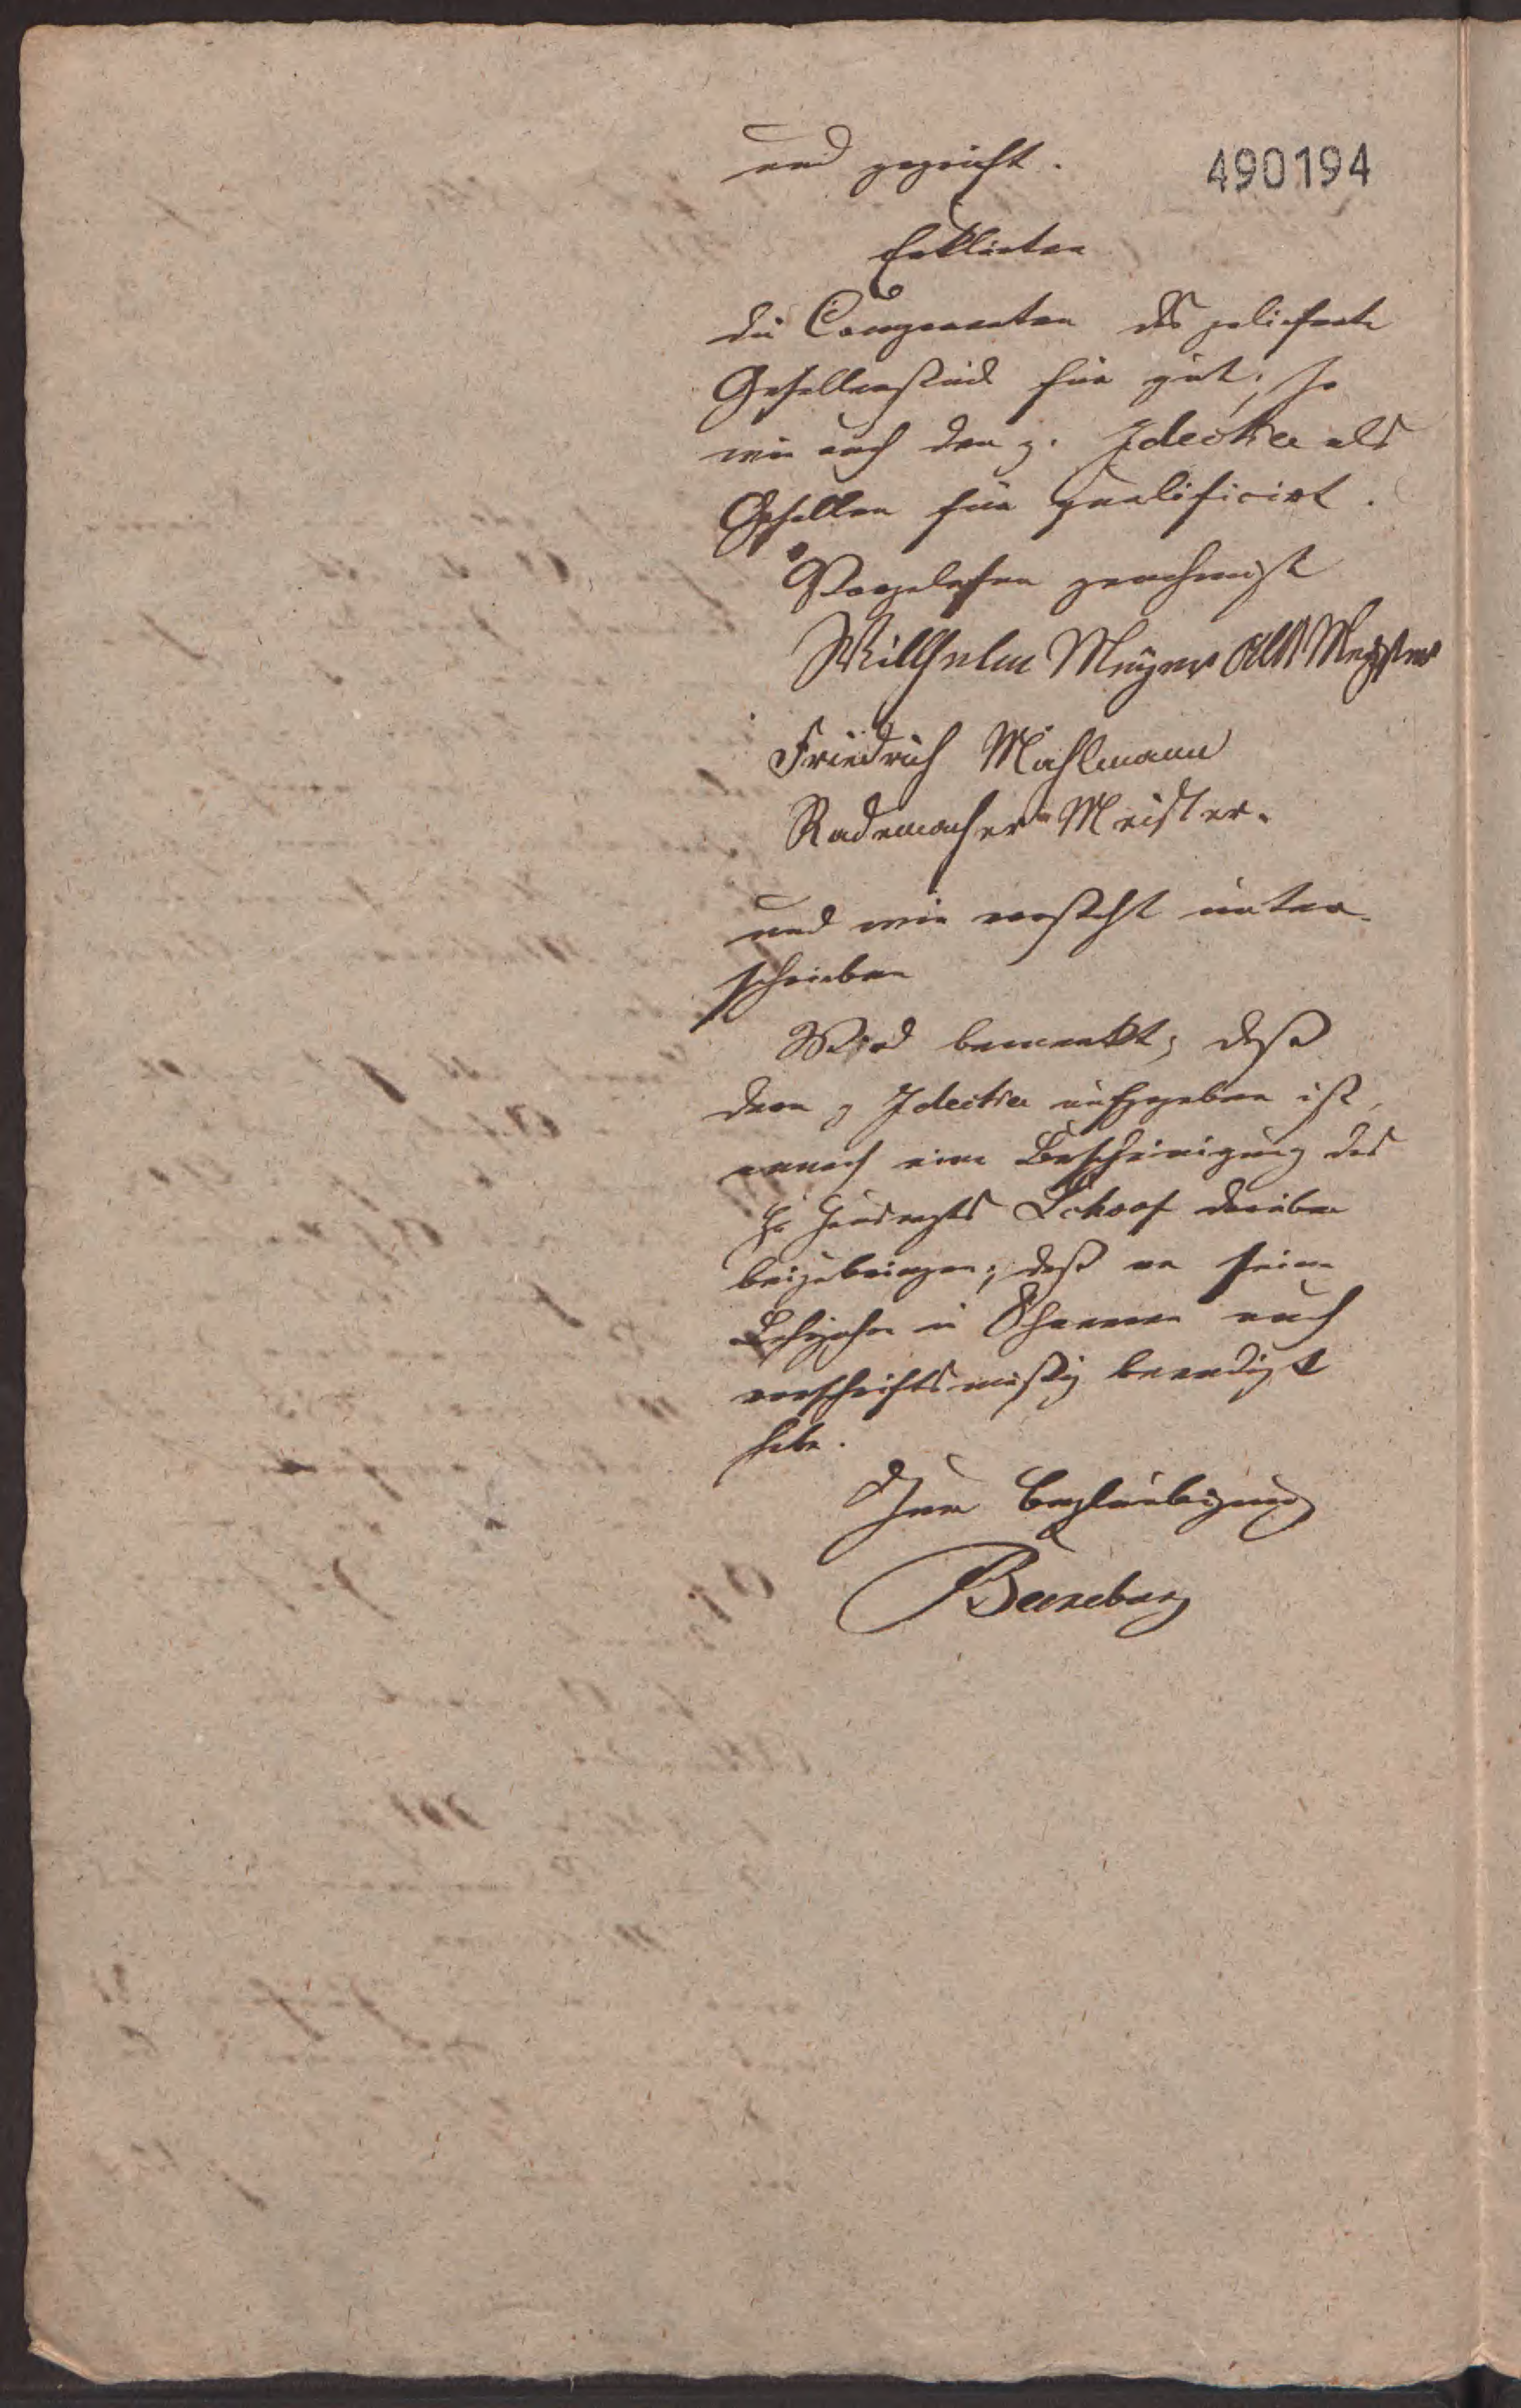 und
490194
Erklärten
die Comparenten das gelieferte
Gesellenstück für gut, so
wie auch den g. Idecke als
Gesellen für qualificirt.
Vorgelesen genehmigt
Willhelm Meyer Alt Meister
Friedrich Mühlmann
Rademacher Meister.
und wie vorsteht unter-
schrieben
Wird bemerkt, daß
dem g Idecke aufgegeben ist,
annoch eine Bescheinigung des
Schoof darüber
beizubringen, daß er seine
Lehrjahre in auch
vorschriftsmäßig beendigt
habe.
Zur Beglaubigung